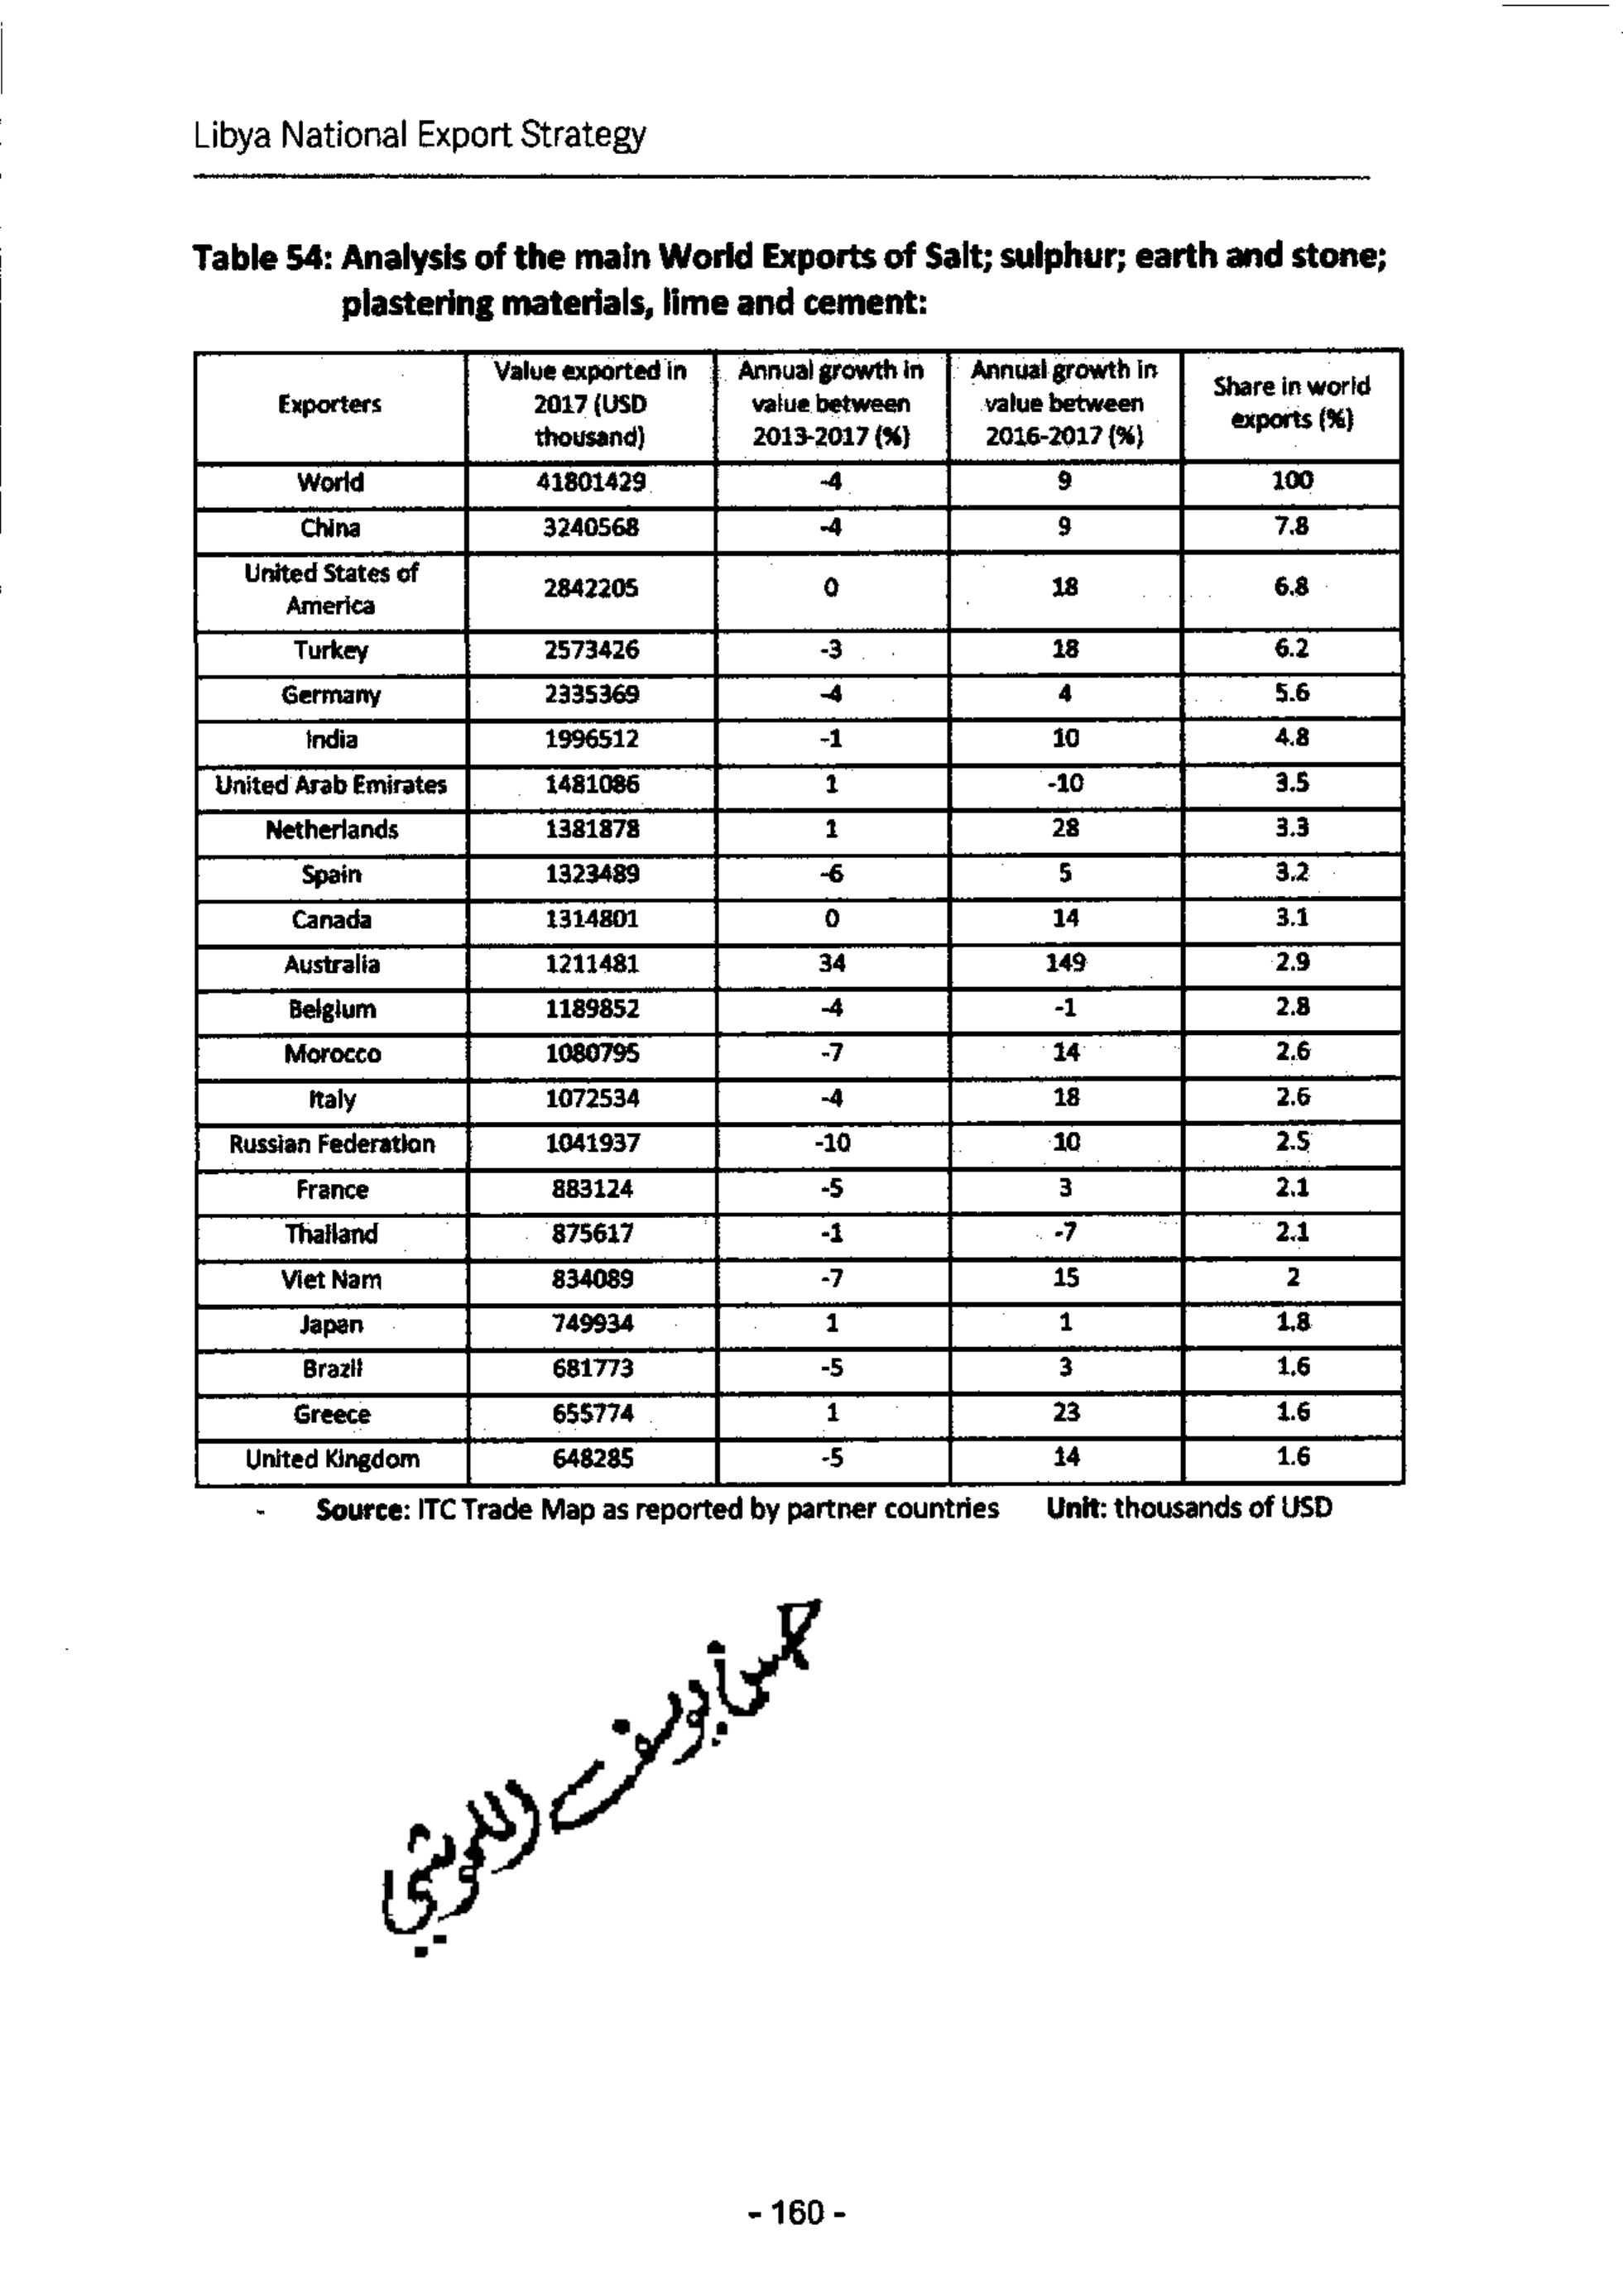 Libya National Export Strategy
Table 54: Analysis of the main World Exports of Salt; sulphur; earth and stone;
plastering materials, lime and cement:
Exporters Value exported in 2017 (USD thousand) Annual growth in value between 2013-2017 (%) Annual growth in value between 2016-2017 (%) Share in world exports (%)
World 41801429 -4 9 100
China 3240568 -4 9 7.8
United States of America 2842205 0 18 6.8
Turkey 2573426 -3 18 6.2
Germany 2335369 -4 4 5.6
India 1996512 -1 10 4.8
United Arab Emirates 1481086 1 -10 3.5
Netherlands 1381878 1 28 3.3
Spain 1323489 -6 5 3.2
Canada 1314801 0 14 3.1
Australia 1211481 34 149 2.9
Belgium 1189852 -4 -1 2.8
Morocco 1080795 -7 14 2.6
Italy 1072534 -4 18 2.6
Russian Federation 1041937 -10 10 2.5
France 883124 -5 3 2.1
Thailand 875617 -1 -7 2.1
Viet Nam 834089 -7 15 2
Japan 749934 1 1 1.8
Brazil 681773 -5 3 1.6
Greece 655774 1 23 1.6
United Kingdom 648285 -5 14 1.6
- Source: ITC Trade Map as reported by partner countries Unit: thousands of USD
- 160 -